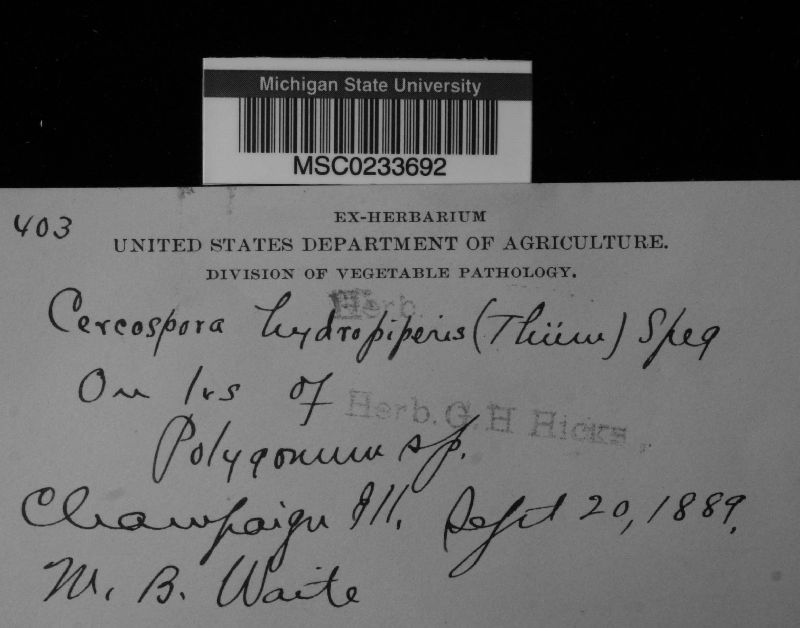 Michigan State University
MSC0233692
403
EX-HERBARIUM
UNITED STATES DEPARTMENT OF AGRICULTURE.
DIVISION OF VEGETABLE PATHOLOGY.
Herb.
Cercospora hydropiperis (Thüm) Speg
On lvs of
Herb. G. H Hicks,
Polygonum sp.
Champaign Ill. Sept 20, 1889.
M. B. Waite